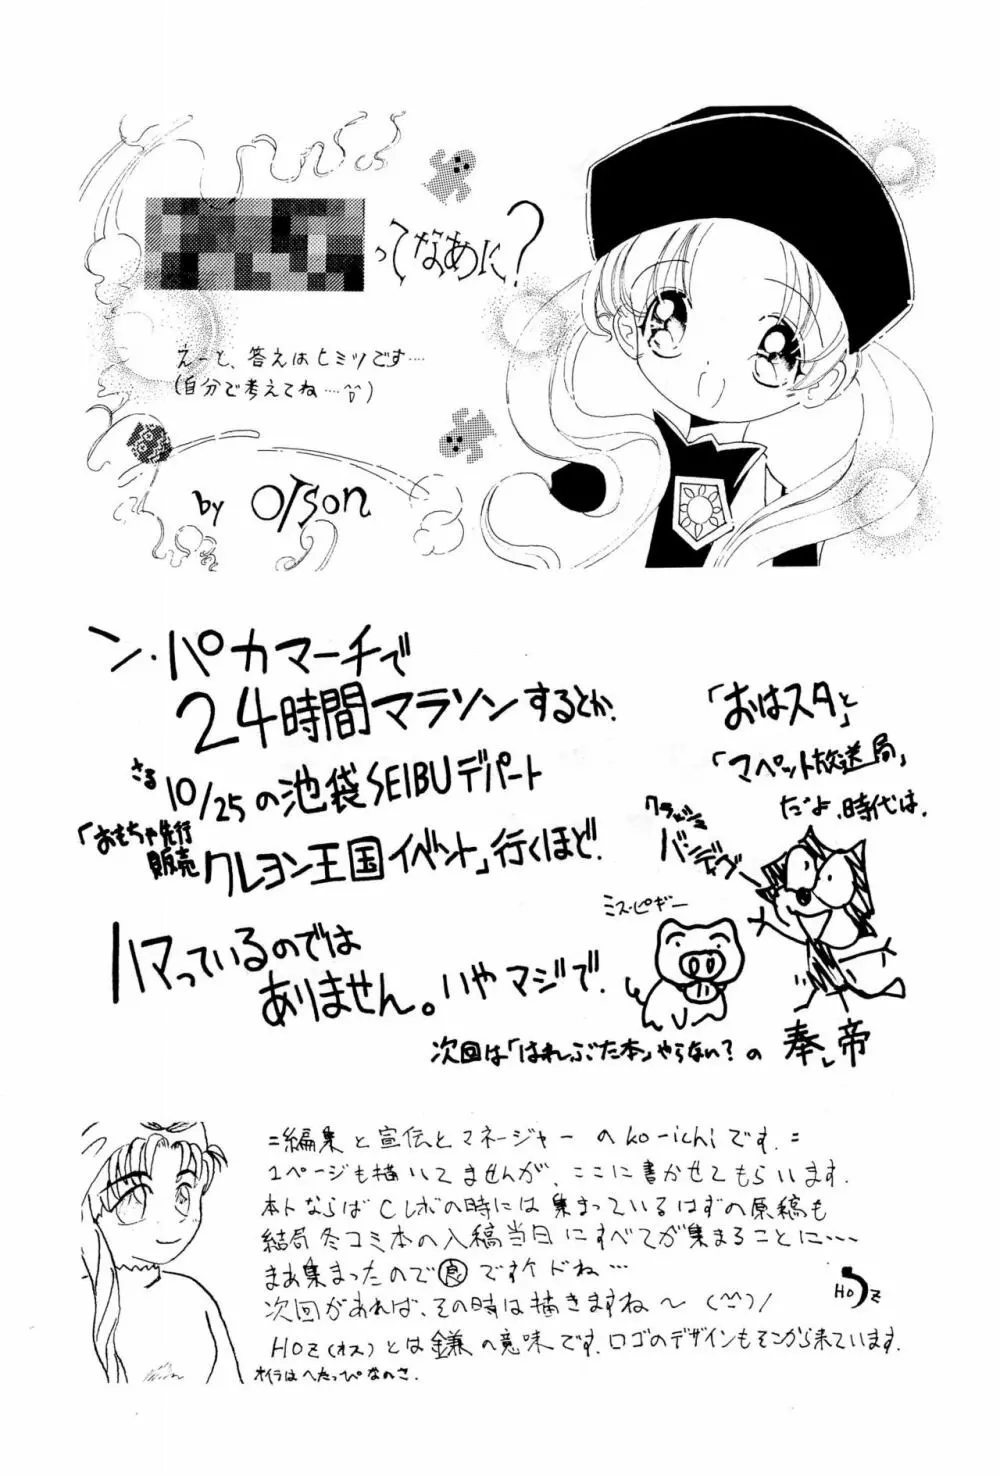 ってなあに?
えーと、答えはヒミツです‥‥
(自分で考えてね‥‥^▽^)
by orson
ン・パカマーチで
24時間マラソンするとか、
さる
10/25の池袋SEIBUデパート
「おもちゃ先行
販売
クレヨン王国イベント」行くほど、
ハマっているのでは
ありません。いやマジで。
「おはスタ」と
「マペット放送局」
だよ、時代は。
クラッシュ
バンディグー
ミス・ピギー
次回は「はれぶた本」やらない?の
奉帝
=編集と宣伝とマネージャーのko-ichiです.=
1ページも描いてませんが、ここに書かせてもらいます.
本トならばCレボの時には集まっているはずの原稿も
結局冬コミ本の入稿当日にすべてが集まることに‥‥
まあ集まったので良ですケドね‥
次回があれば、その時は描きますね〜(^^)/
HOz
HOz(オス)とは鎌の意味です.ロゴのデザインもそこから来ています.
オイラはへたっぴなのさ.